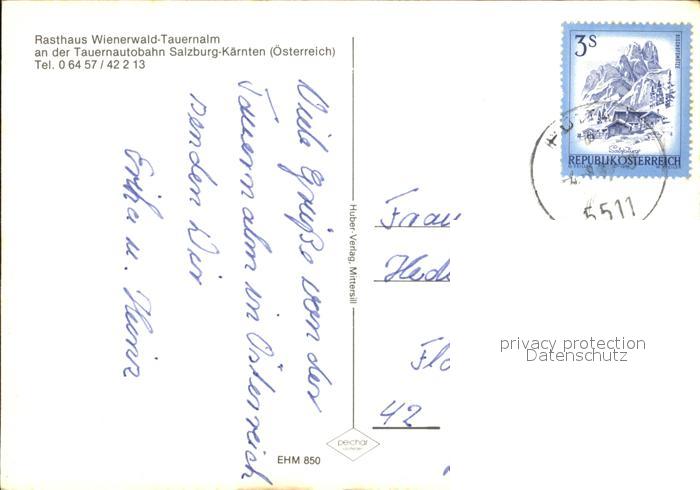 Rasthaus Wienerwald-Tauernalm
an der Tauernautobahn Salzburg-Kärnten (Österreich)
Tel. 0 64 57 / 42 2 13
Viele Grüße von der
Tauernalm in Österreich
senden Wir
Erika u. Heinz
Huber-Verlag, Mittersill
pechar
EHM 850
3S
Salzburg
REPUBLIK ÖSTERREICH
5511
Frau
Hed
Flo
42
privacy protection
Datenschutz